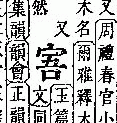 又周禮春官小
木名爾雅釋木
又
然
玉篇
文同
集韻韻會正韻